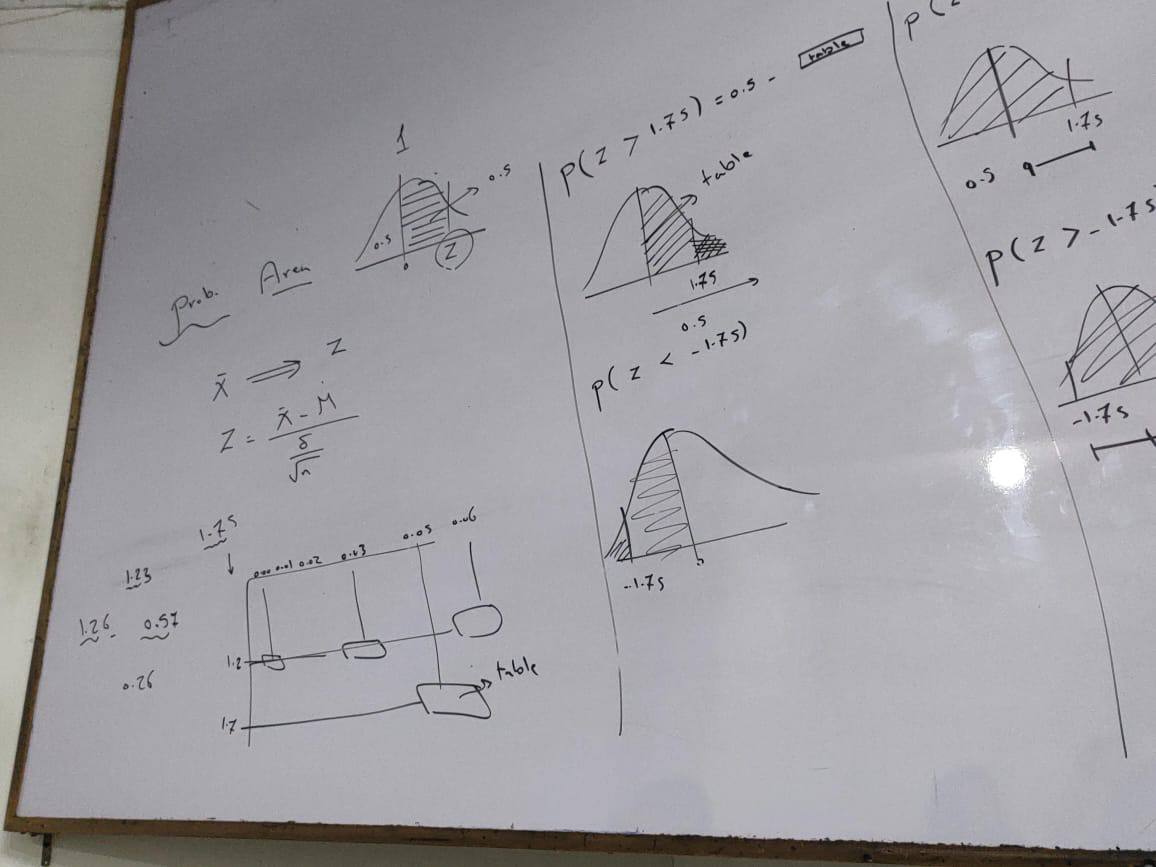 1
0.5
0.5
0
Z
Prob. Area
x̄ ⟹ Z
Z = (x̄ - M) / (δ/√n)
1.75
1.23
1.26 0.57
0.26
0.00 0.01 0.02 0.03 0.05 0.06
1.2
1.7
table
P(Z > 1.75) = 0.5 - table
table
1.75
0.5
P(Z < -1.75)
-1.75
0
P(Z
1.75
0.5
P(Z > -1.75
-1.75